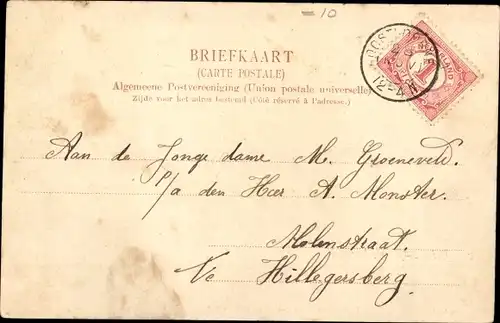 - 10
BRIEFKAART
(CARTE POSTALE)
Algemeene Postvereeniging (Union postale universelle)
Zijde voor het adres bestemd (Côté réservé à l'adresse.)
Aan de Jonge dame M. Groeneveld.
p/a den Heer A. Monster.
Molenstraat.
Te Hillegersberg